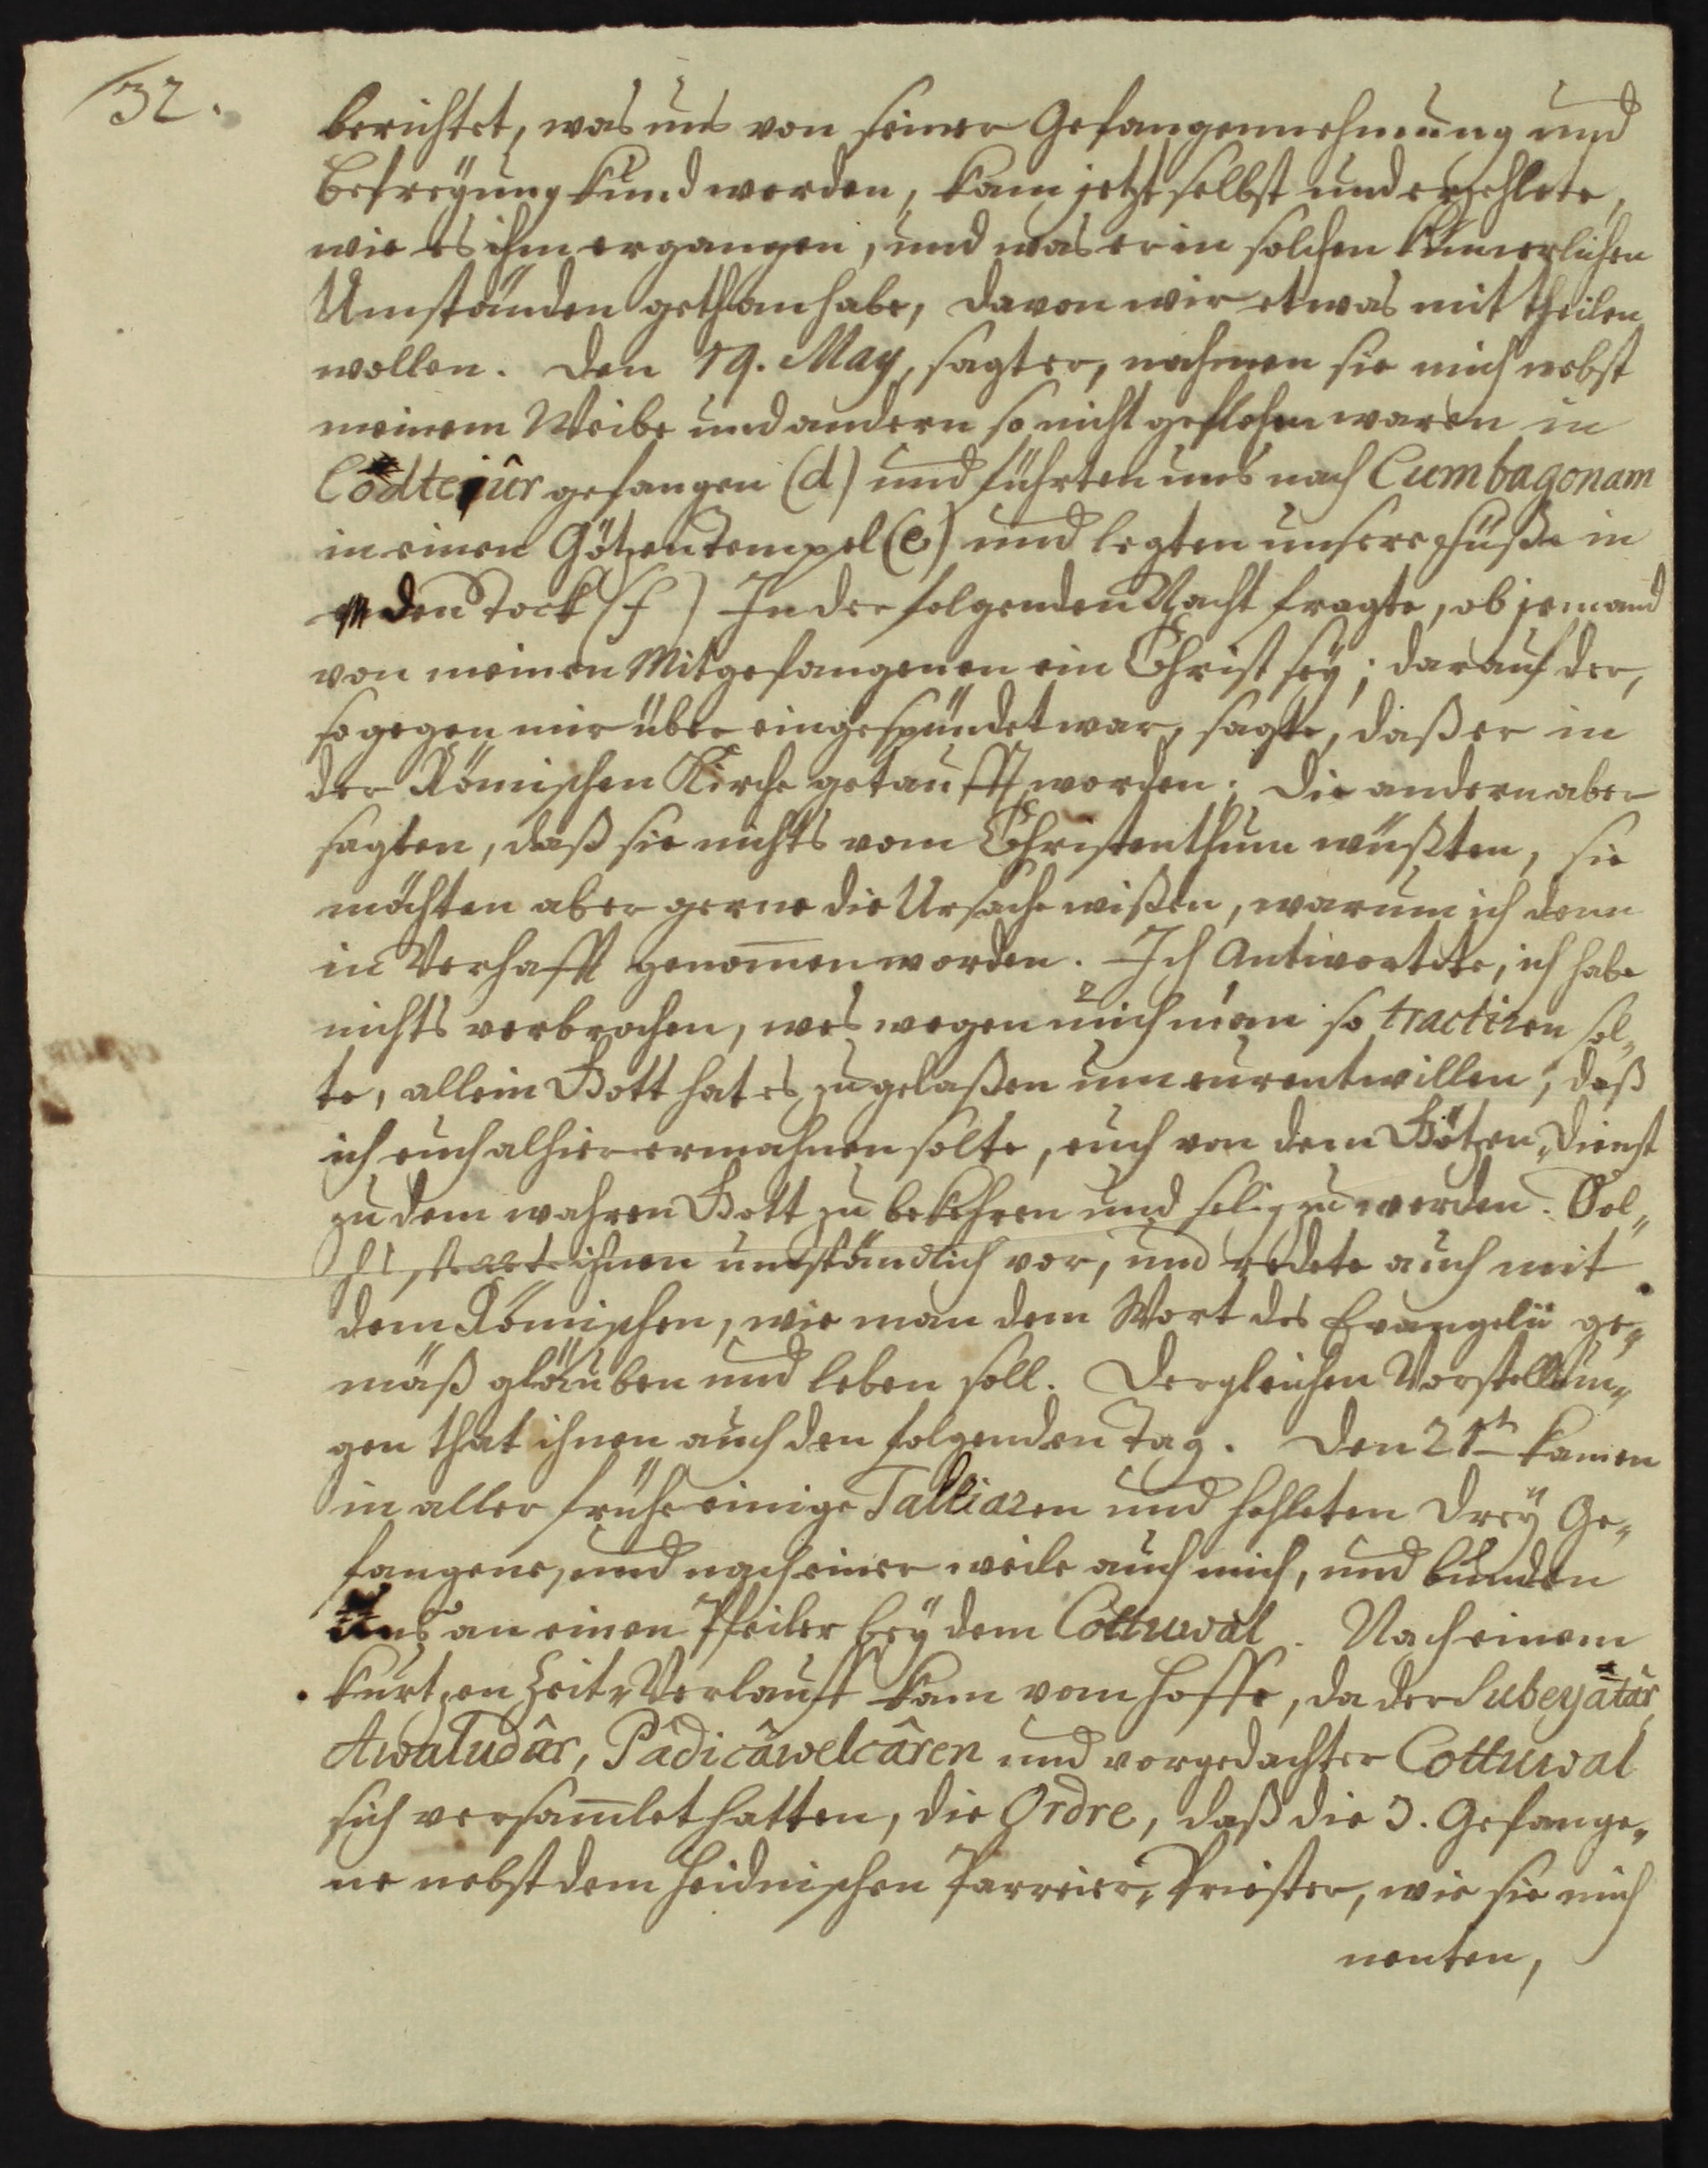 32.
berichtet, was uns von seiner Gefangennehmung und
Befreyung kund worden, kam jetzt selbst und erzehlete,
wie es ihm ergangen, und was er in solchen kümerlichen
Umständen gethan habe, davon wir etwas mit theilen
wollen. Den 19. May, sagt er, nahmen sie mich nebst
meinem Weibe und andern so nicht geflohen waren in
Cödtejûr gefangen (d) und führten uns nach Cumbagonam
in einen Götzen Tempel (e) und legten unsere Füße in
den Stock (f) In der folgenden Nacht fragte, ob jemand
von meinen Mitgefangenen ein Christ sey; darauf der,
so gegen mir über eingespündet war, sagte, daß er in
der Römischen Kirche getaufft worden. Die andern aber
sagten, daß sie nichts vom Christenthum wüßten, sie
möchten aber gerne die Ursache wißen, warum ich denn
in Verhafft genom̅en worden. Ich Antwortete, ich habe
nichts verbrochen, wes wegen mich man so tractiren sol„
te, allein Gott hat es zugelaßen um eurentwillen, daß
ich euch alhier ermahnen solte, euch von dem Götzen„Dienst
zu dem wahren Gott zu bekehren und selig zu werden. Sol„
ches stellete ihnen umständlich vor, und redete auch mit
dem Römischen, wie man dem Wort des Evangelii ge„
mäß gläuben und leben soll. Dergleichen Vorstellun„
gen that ihnen auch den folgenden Tag. Den 21st kamen
in aller frühe einige Talliaren und hohleten drey Ge„
fangene, und nach einer weile auch mich, und bunden
uns an einen Pfeiler bey dem Cottuwal. Nach einem
kurtzen Zeit„Verlauff kam vom Hoffe, da der Subeyatâr,
Awaludâr, Pâdicâwelcâren und vorgedachter Cottuwal
sich versam̅let hatten, die Ordre, daß die 3. Gefange„
ne nebst dem heidnischen Parreier„Priester, wie sie mich
nenten,